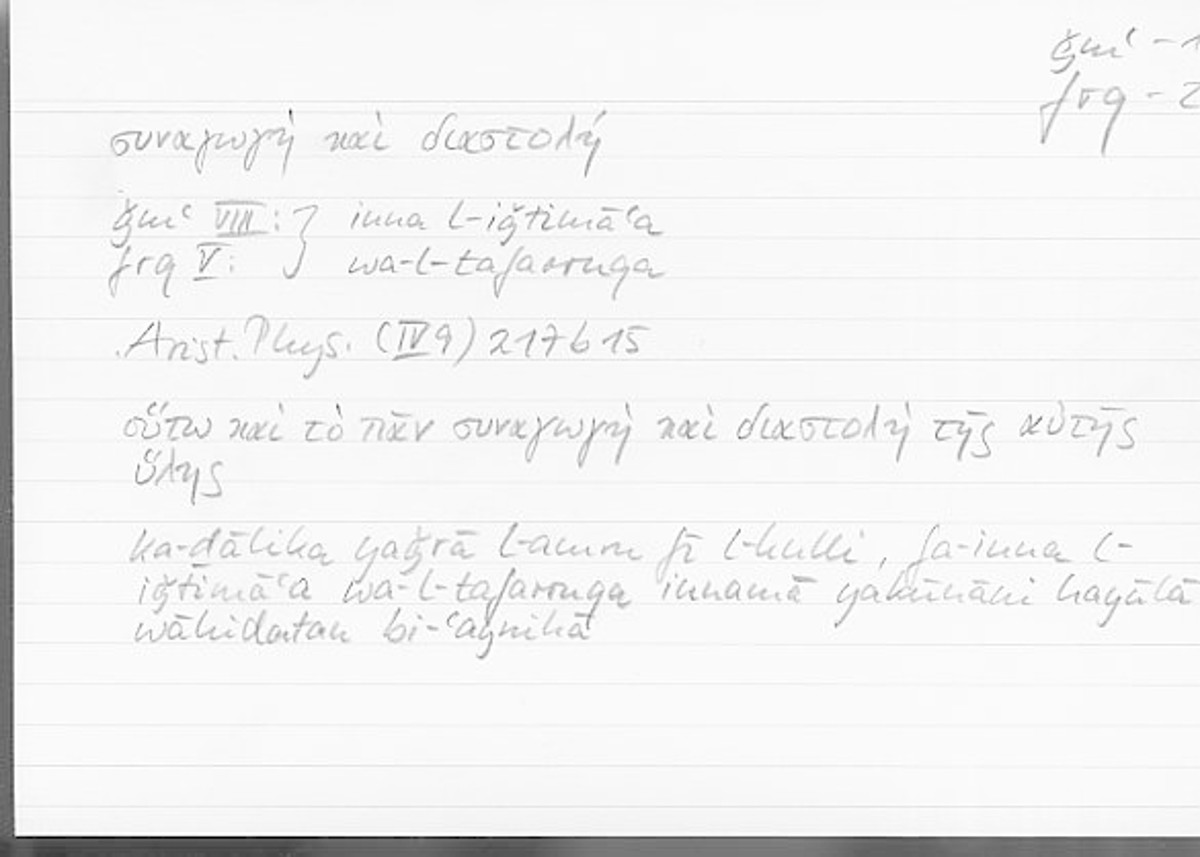 ǧmʿ - 1
frq - 2
συναγωγὴ καὶ διαστολή
ǧmʿ VIII: } inna l-iǧtimāʿa
frq V: wa-l-tafarruqa
Arist. Phys. (IV 9) 217 b 15
οὕτω καὶ τὸ πᾶν συναγωγὴ καὶ διαστολὴ τῆς αὐτῆς
ὕλης
ka-ḏālika yaǧrā l-amru fī l-kulli, fa-inna l-
iǧtimāʿa wa-l-tafarruqa innamā yakūnāni hayūlā
wāḥidatan bi-ʿaynihā